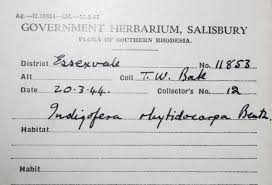 Ag.—H.10924—4M.—12.2.47
GOVERNMENT HERBARIUM, SALISBURY
FLORA OF SOUTHERN RHODESIA.
District Essexvale No. 11853
Alt Coll T.W. Bak
Date 20.3.44. Collector's No. 12
Indigofera rhytidocarpa Benth.
Habitat
Habit